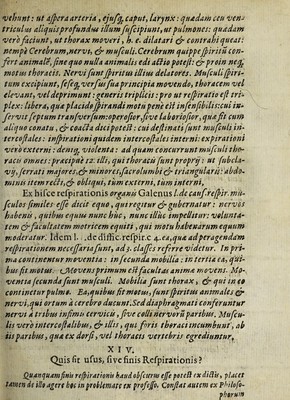 vehunt: ut aspera arteria, ejusq; caput, larynx: quædam ceu ven-
triculus aliquis profundius illum suscipiunt, ut pulmones: quædam
verò faciunt, ut thorax moveri, h. e. dilatari & contrahi queat:
nempè Cerebrum, nervi, & musculi. Cerebrum quippe spiritū con-
fert animalē, sine quo nulla animalis edi actio potest: & proin neq;
motus thoracis. Nervi sunt spiritus illius delatores. Musculi spiri-
tum excipiunt, seseq; versus sua principia movendo, thoracem vel
elevant, vel deprimunt: generis triplicis: pro ut respiratio est tri-
plex: libera, quæ placido spirandi motu penè est insensibilis: cui in-
servit septum transversum: operosior, sive laboriosior, quæ fit cum
aliquo conatu, & coacta dici potest: cui destinati sunt musculi in-
tercostales: inspirationi quidem intercostales interni: expirationi
verò externi: denique, violenta: ad quam concurrunt musculi tho-
raci omnes: præcipuè 12. illi, qui thoraci sunt proprij: ut subcla-
vij, serrati majores, & minores, sacrolumbi & triangulares: abdo-
minis item recti, & obliqui, tùm externi, tùm interni,
Ex hisce respirationis organis Galenus l. de caus. respir. mu-
sculos similes esse dicit equo, qui regitur & gubernatur: nervos
habenis, quibus equus nunc hùc, nunc illùc impellitur: volunta-
tem & facultatem motricem equiti, qui motu habenarum equum
moderatur. Idem l. 1. de diffic. respir. c. 4. ea, quæ ad peragendam
respirationem necessaria sunt, ad 3. classes referre videtur. In pri-
ma continentur moventia: in secunda mobilia: in tertia ea, qui-
bus fit motus. Movens primum est facultas animæ movens. Mo-
ventia secunda sunt musculi. Mobilia sunt thorax, & qui in eo
continetur pulmo. Ea, quibus fit motus, sunt spiritus animales &
nervi, qui ortum à cerebro ducunt. Sed diaphragmati conferuntur
nervi à tribus infimis cervicis, sive colli nervorum paribus. Muscu-
lis verò intercostalibus, & illis, qui foris thoraci incumbunt, ab
iis paribus, quæ ex dorsi, vel thoracis vertebris egrediuntur.
XIV.
Quis sit usus, sive finis Respirationis?
Quanquam finis respirationis haud obscurus esse potest ex dictis, placet
tamen de illo agere hoc in problemate ex professo. Constat autem ex Philoso-
phorum